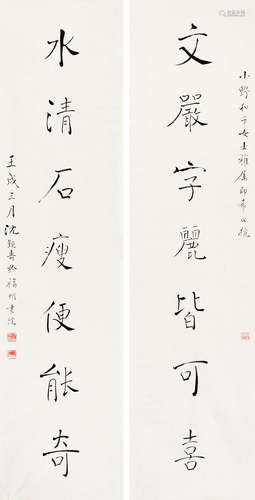 小野和子女士雅屬即希
文嚴字麗皆可喜
水清石瘦便能奇
壬戌三月沈覲壽於福州